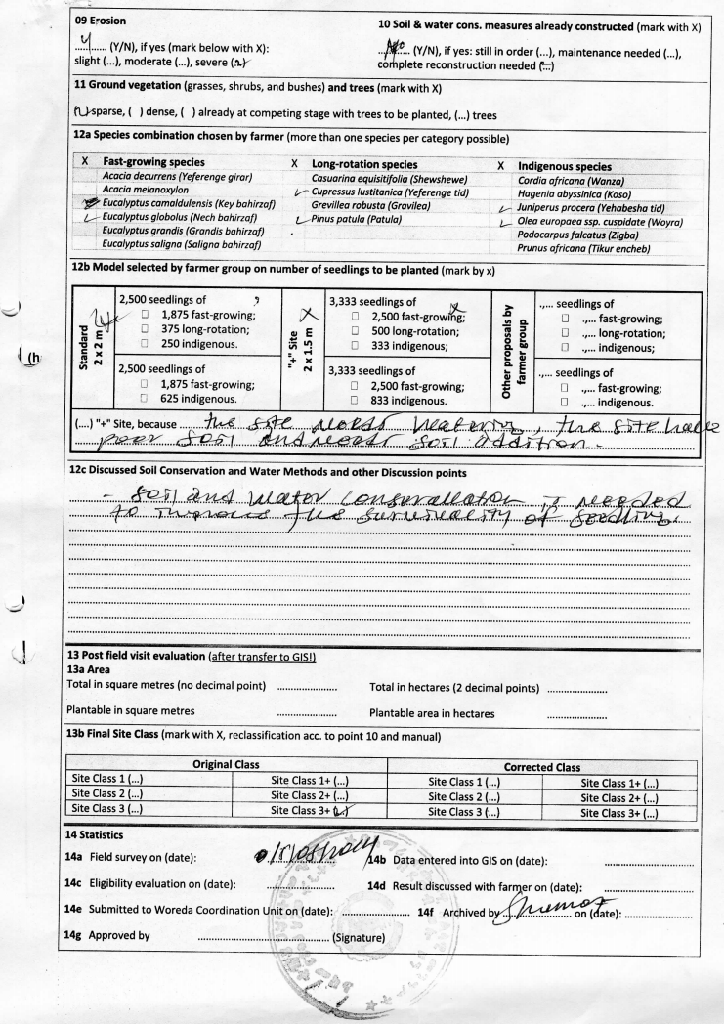 09 Erosion
10 Soil & water cons. measures already constructed (mark with X)
Y (Y/N), if yes (mark below with X):
No (Y/N), if yes: still in order (...), maintenance needed (...),
slight (...), moderate (...), severe (x)
complete reconstruction needed (...)
11 Ground vegetation (grasses, shrubs, and bushes) and trees (mark with X)
sparse, ( ) dense, ( ) already at competing stage with trees to be planted, (...) trees
12a Species combination chosen by farmer (more than one species per category possible)
X Fast-growing species X Long-rotation species X Indigenous species
Acacia decurrens (Yeferenge girar) Casuarina equisitifolia (Shewshewe) Cordia africana (Wanza)
Acacia melanoxylon Cupressus lustitanica (Yeferenge tid) Hagenia abyssinica (Koso)
Eucalyptus camaldulensis (Key bahirzaf) Grevillea robusta (Grevilea) Juniperus procera (Yehabesha tid)
Eucalyptus globolus (Nech bahirzaf) Pinus patula (Patula) Olea europaea ssp. cuspidate (Woyra)
Eucalyptus grandis (Grandis bahirzaf) Podocarpus falcatus (Zigba)
Eucalyptus saligna (Saligna bahirzaf) Prunus africana (Tikur encheb)
12b Model selected by farmer group on number of seedlings to be planted (mark by x)
Standard
2 x 2 m
2,500 seedlings of
1,875 fast-growing;
375 long-rotation;
250 indigenous.
2,500 seedlings of
1,875 fast-growing;
625 indigenous.
X
"+" Site
2 x 1.5 m
3,333 seedlings of
2,500 fast-growing;
500 long-rotation;
333 indigenous;
3,333 seedlings of
2,500 fast-growing;
833 indigenous.
Other proposals by
farmer group
.,... seedlings of
.,... fast-growing;
.,... long-rotation;
.,... indigenous;
.,... seedlings of
.,... fast-growing;
.,... indigenous.
(...) "+" Site, because the site needs watering, the site have
poor soil and needs soil addition.
12c Discussed Soil Conservation and Water Methods and other Discussion points
- Soil and water conservation is needed
to improve the survivality of seedling.
(h
13 Post field visit evaluation (after transfer to GIS!)
13a Area
Total in square metres (no decimal point) .................. Total in hectares (2 decimal points) ..................
Plantable in square metres .................. Plantable area in hectares ..................
13b Final Site Class (mark with X, reclassification acc. to point 10 and manual)
Original Class Corrected Class
Site Class 1 (...) Site Class 1+ (...) Site Class 1 (...) Site Class 1+ (...)
Site Class 2 (...) Site Class 2+ (...) Site Class 2 (...) Site Class 2+ (...)
Site Class 3 (...) Site Class 3+ (x) Site Class 3 (...) Site Class 3+ (...)
14 Statistics
14a Field survey on (date): 14b Data entered into GIS on (date): ..................
14c Eligibility evaluation on (date): .................. 14d Result discussed with farmer on (date): ..................
14e Submitted to Woreda Coordination Unit on (date): .................. 14f Archived by on (date): ..................
14g Approved by .................. (Signature)